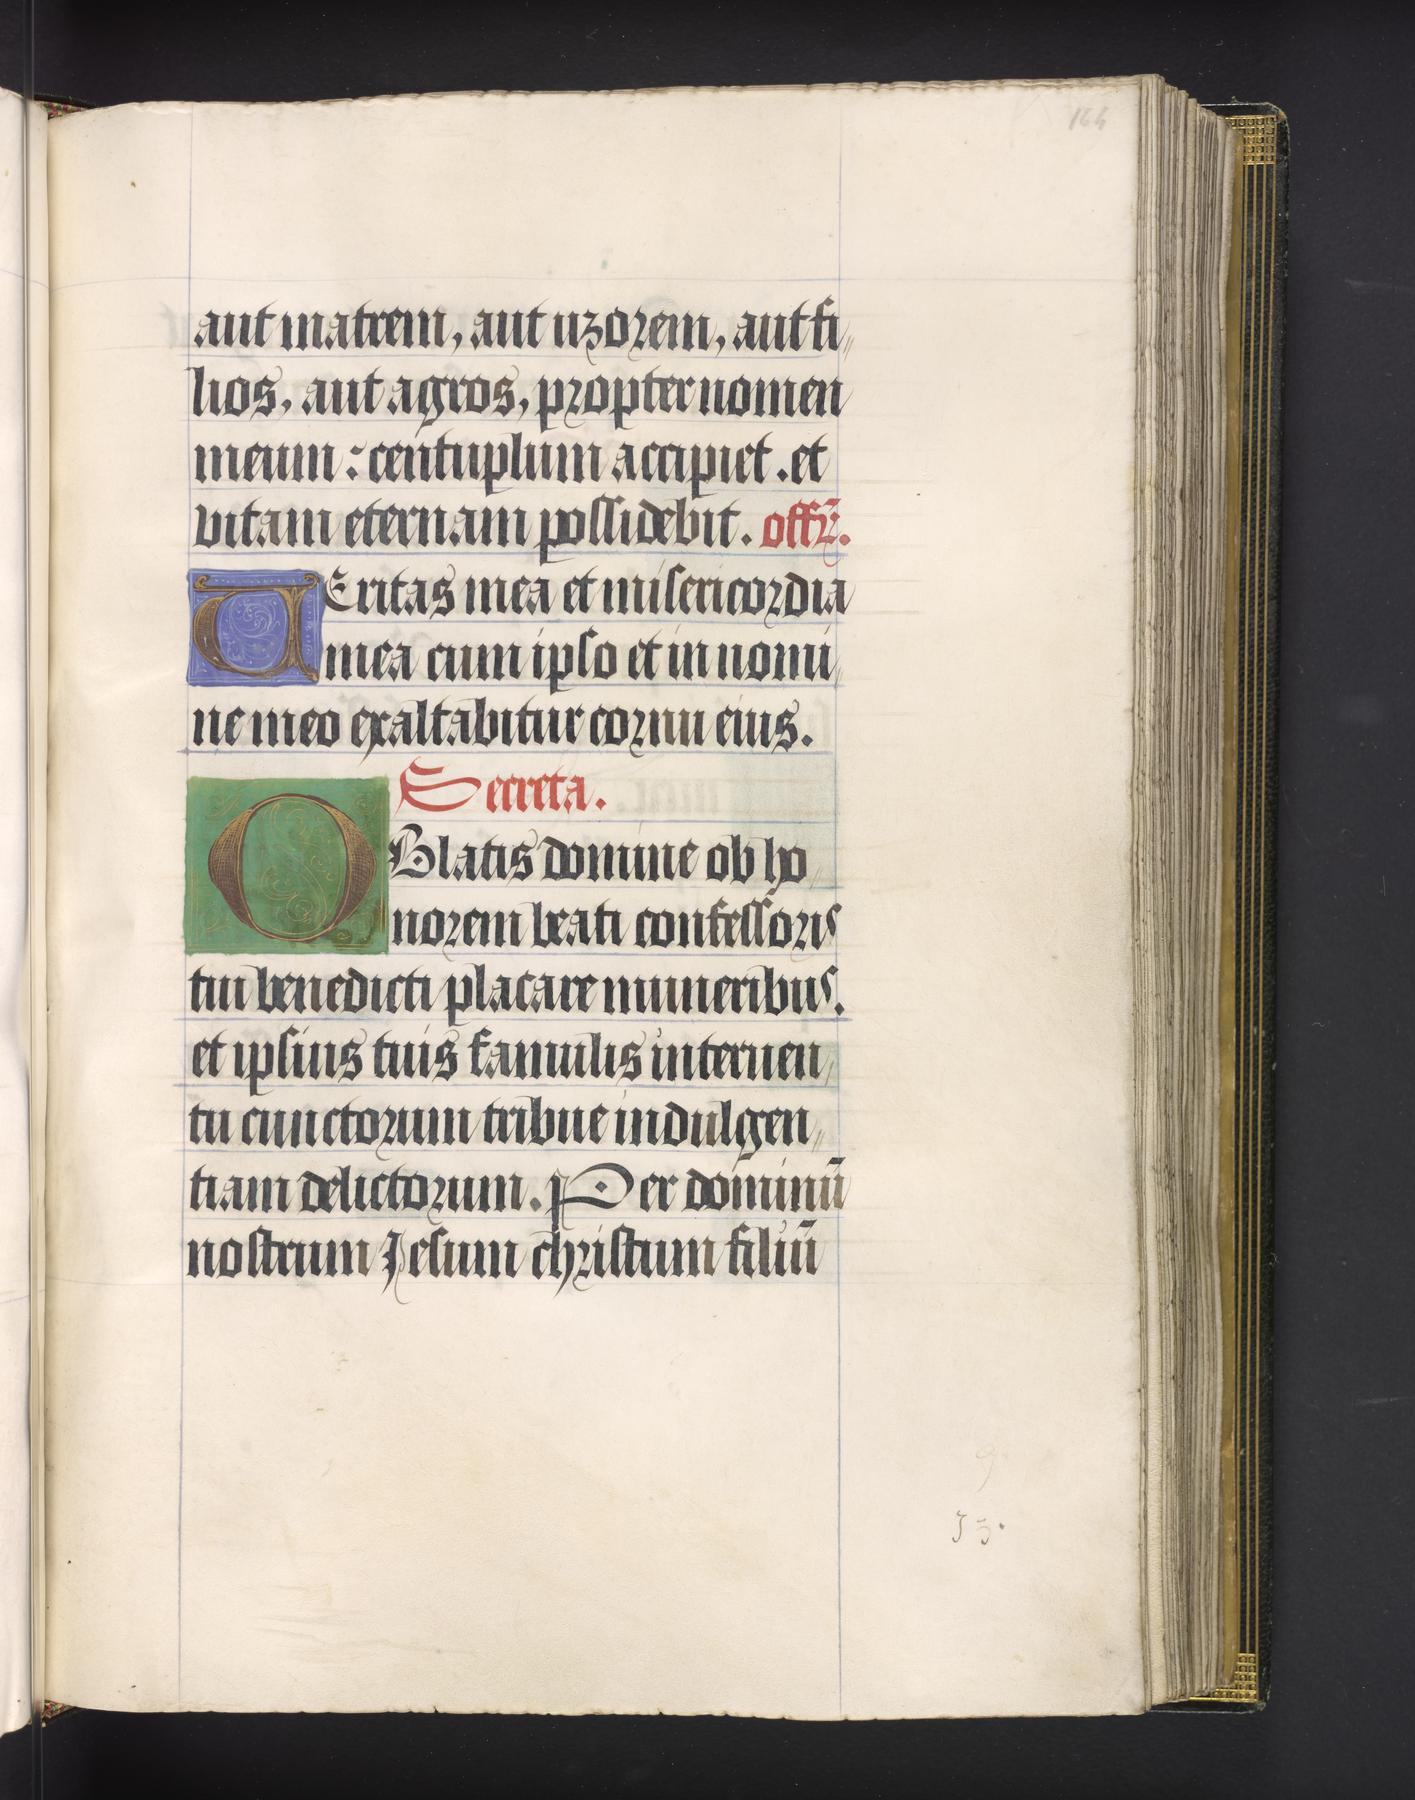 164
aut matrem, aut uxorem, aut fi⸗
lios, aut agros, propter nomen
meum : centuplum accipiet . et
vitam eternam possidebit. offr̃.
UEritas mea et misericordia
mea cum ipso et in nomi⸗
ne meo exaltabitur cornu eius.
Secreta.
OBlatis domine ob ho⸗
norem beati confessoris
tui benedicti placare muneribus.
et ipsius tuis famulis interuen⸗
tu cunctorum tribue indulgen⸗
tiam delictorum. Per dominũ
nostrum Jesum christum filiũ
9
33.